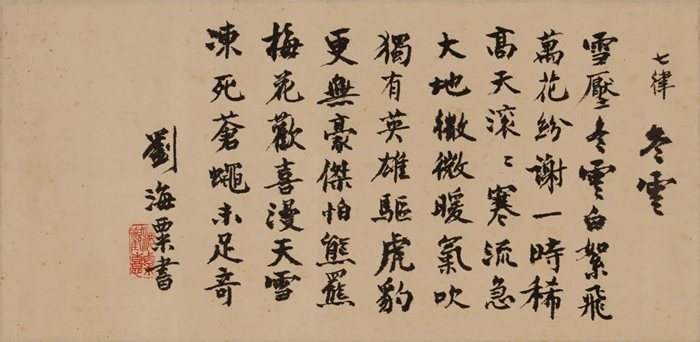 七律 冬雲
雪壓冬雲白絮飛
萬花紛謝一時稀
高天滚〻寒流急
大地微微暖氣吹
獨有英雄驅虎豹
更無豪傑怕熊羆
梅花歡喜漫天雪
凍死蒼蠅未足奇
劉海粟書